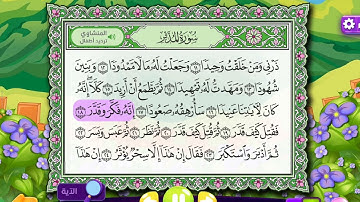 المنشاوي
ترديد أطفال
سُورَةُ المُدَّثِّرِ
ذَرْنِي وَمَنْ خَلَقْتُ وَحِيدًا ١١ وَجَعَلْتُ لَهُ مَالًا مَمْدُودًا ١٢ وَبَنِينَ
شُهُودًا ١٣ وَمَهَّدْتُ لَهُ تَمْهِيدًا ١٤ ثُمَّ يَطْمَعُ أَنْ أَزِيدَ ١٥ كَلَّا إِنَّهُ
كَانَ لِآيَاتِنَا عَنِيدًا ١٦ سَأُرْهِقُهُ صَعُودًا ١٧ إِنَّهُ فَكَّرَ وَقَدَّرَ ١٨
فَقُتِلَ كَيْفَ قَدَّرَ ١٩ ثُمَّ قُتِلَ كَيْفَ قَدَّرَ ٢٠ ثُمَّ نَظَرَ ٢١ ثُمَّ عَبَسَ وَبَسَرَ ٢٢
ثُمَّ أَدْبَرَ وَاسْتَكْبَرَ ٢٣ فَقَالَ إِنْ هَذَا إِلَّا سِحْرٌ يُؤْثَرُ ٢٤ إِنْ هَذَا
الآية